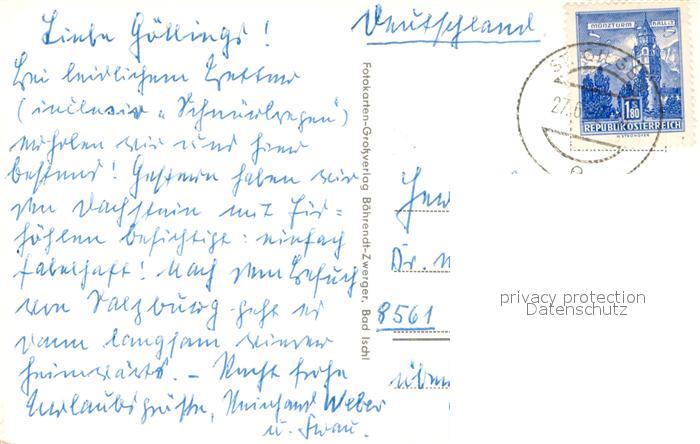 Liebe Göllings!
Bei leidlichem Wetter
(inclusiv "Schnürlregen")
erholen wir uns hier
bestens! Gestern haben wir
den Dachstein mit Eis=
höhlen besichtigt: einfach
fabelhaft! Nach dem Besuch
von Salzburg geht es
dann langsam wieder
heimwärts. – Recht frohe
Urlaubsgrüße, Reinhard Weber
u. Frau.
Fotokarten-Großverlag Böhrendt-Zwerger, Bad Ischl
Deutschland.
MÜNZTURM HALL i.T.
S
1.80
REPUBLIK ÖSTERREICH
27.6
Dr.
8561
privacy protection
Datenschutz